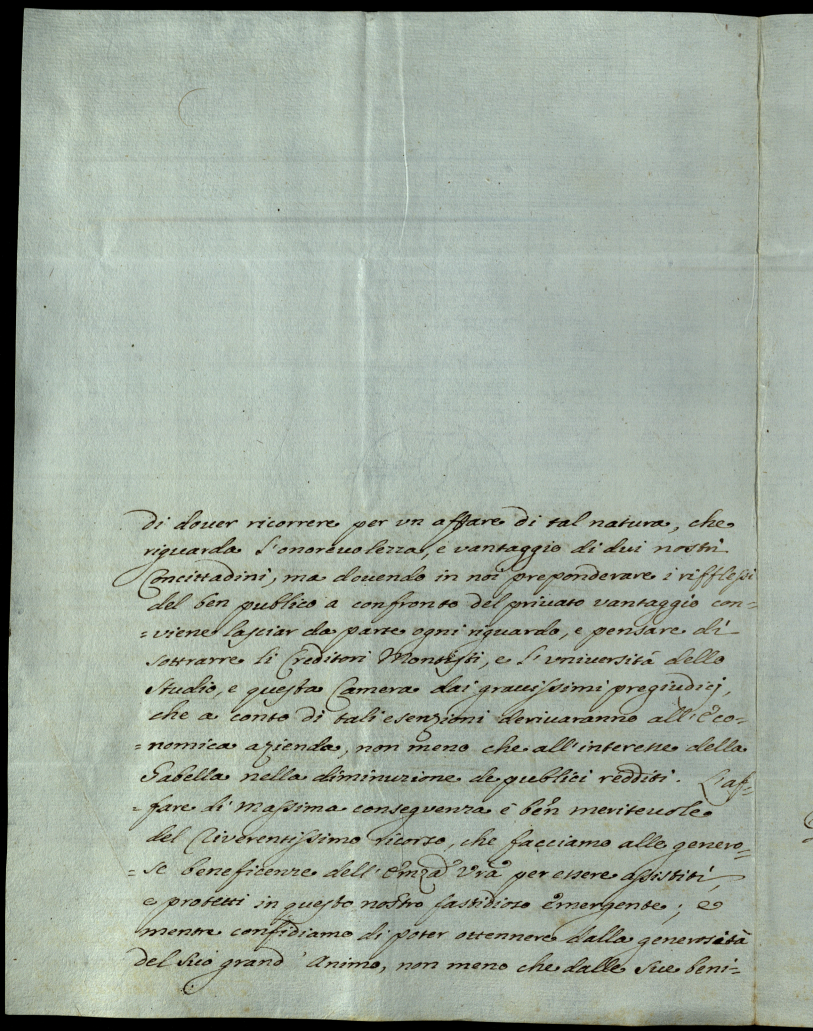 di douer ricorrere per vn affare di tal natura, che
riguarda l'onoreuolezza, e vantaggio di dui nostri
Concittadini, ma douendo in noi preponderare i rifflessi
del ben publico a confronto del priuato vantaggio con-
-viene lasciar da parte ogni riguardo, e pensare di
sottrarre li Creditori Montisti, e l'vniuersità dello
Studio, e questa Camera dai grauissimi pregiudicj,
che a conto di tali esenzioni deriuaranno all'eco-
-nomica azienda, non meno che all'interesse della
Gabella nella diminuzione de publici redditi. L'af-
-fare di massima conseguenza è ben meriteuole
del riuerentissimo ricorso, che facciamo alle genero-
-se beneficenze dell' Emza Vra per essere assistiti,
e protetti in questo nostro fastidioso emergente; e
mentre confidiamo di poter ottennere dalla generosità
del suo grand' Animo, non meno che dalle sue beni-